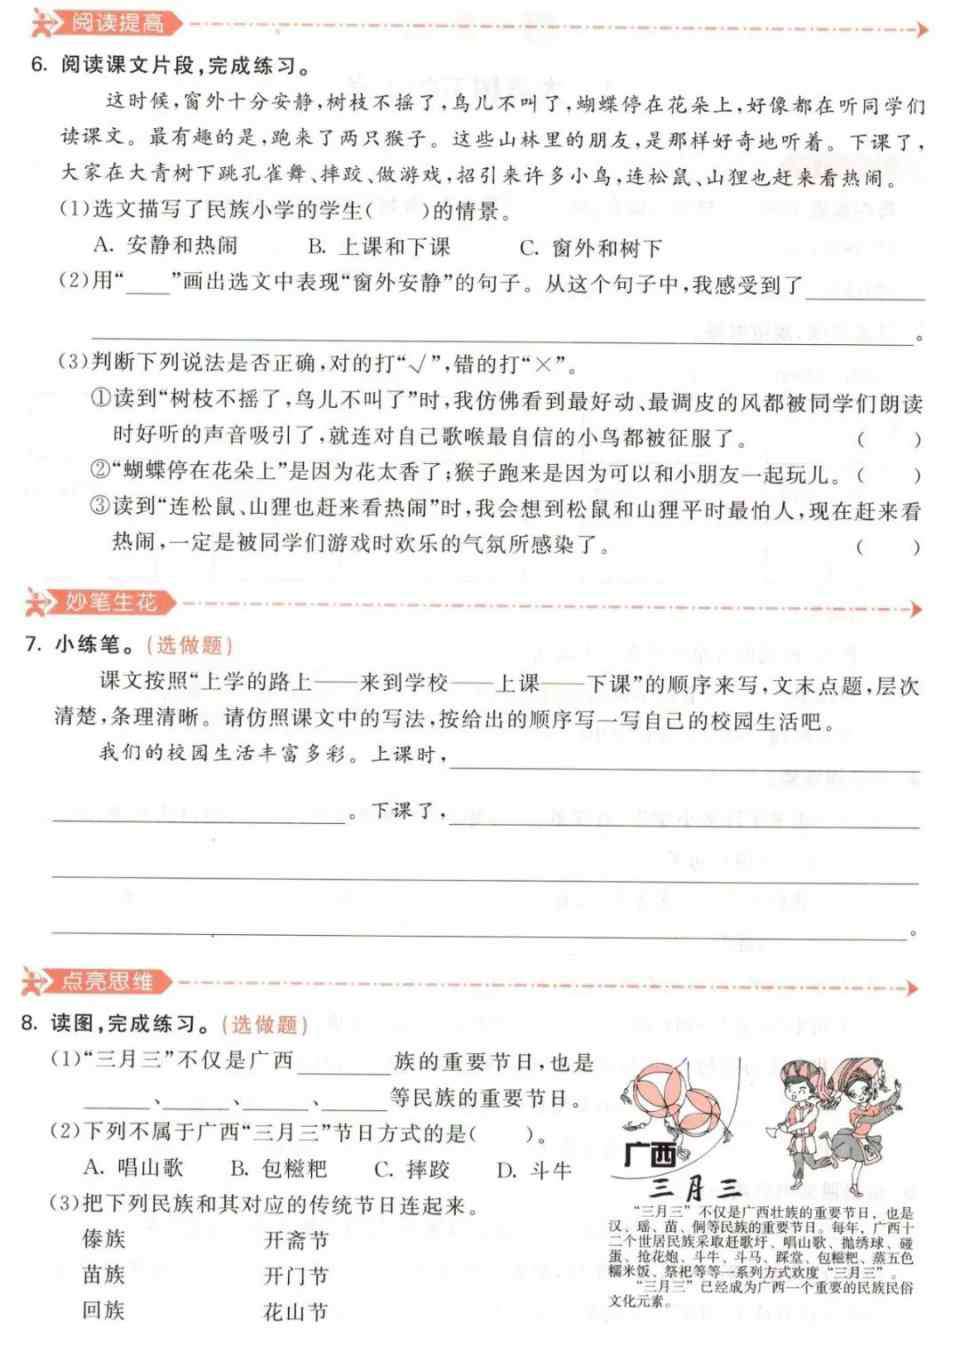 阅读提高
6. 阅读课文片段,完成练习。
这时候,窗外十分安静,树枝不摇了,鸟儿不叫了,蝴蝶停在花朵上,好像都在听同学们
读课文。最有趣的是,跑来了两只猴子。这些山林里的朋友,是那样好奇地听着。下课了,
大家在大青树下跳孔雀舞、摔跤、做游戏,招引来许多小鸟,连松鼠、山狸也赶来看热闹。
(1)选文描写了民族小学的学生(  )的情景。
A. 安静和热闹 B. 上课和下课 C. 窗外和树下
(2)用“____”画出选文中表现“窗外安静”的句子。从这个句子中,我感受到了__________
______________________________。
(3)判断下列说法是否正确,对的打“√”,错的打“×”。
①读到“树枝不摇了,鸟儿不叫了”时,我仿佛看到最好动、最调皮的风都被同学们朗读
时好听的声音吸引了,就连对自己歌喉最自信的小鸟都被征服了。 (  )
②“蝴蝶停在花朵上”是因为花太香了;猴子跑来是因为可以和小朋友一起玩儿。(  )
③读到“连松鼠、山狸也赶来看热闹”时,我会想到松鼠和山狸平时最怕人,现在赶来看
热闹,一定是被同学们游戏时欢乐的气氛所感染了。 (  )
妙笔生花
7. 小练笔。(选做题)
课文按照“上学的路上——来到学校——上课——下课”的顺序来写,文末点题,层次
清楚,条理清晰。请仿照课文中的写法,按给出的顺序写一写自己的校园生活吧。
我们的校园生活丰富多彩。上课时,______________________________
____________________。下课了,______________________________
______________________________
______________________________。
点亮思维
8. 读图,完成练习。(选做题)
(1)“三月三”不仅是广西________族的重要节日,也是
______、______、______、______等民族的重要节日。
(2)下列不属于广西“三月三”节日方式的是(  )。
A. 唱山歌 B. 包糍粑 C. 摔跤 D. 斗牛
(3)把下列民族和其对应的传统节日连起来。
傣族 开斋节
苗族 开门节
回族 花山节
广西
三月三
“三月三”不仅是广西壮族的重要节日,也是
汉、瑶、苗、侗等民族的重要节日。每年,广西十
二个世居民族采取赶歌圩、唱山歌、抛绣球、碰
蛋、抢花炮、斗牛、斗马、踩堂、包糍粑、蒸五色
糯米饭、祭祀等等一系列方式欢度“三月三”。
“三月三”已经成为广西一个重要的民族民俗
文化元素。